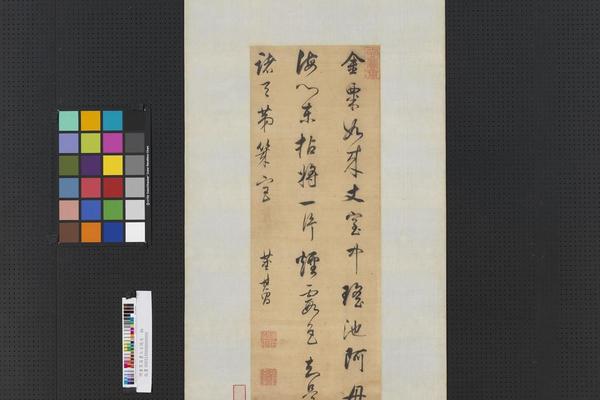 金粟如來丈室中瑤池阿母
海心東拈將一片煙霞色
諸天第幾宮
董其昌